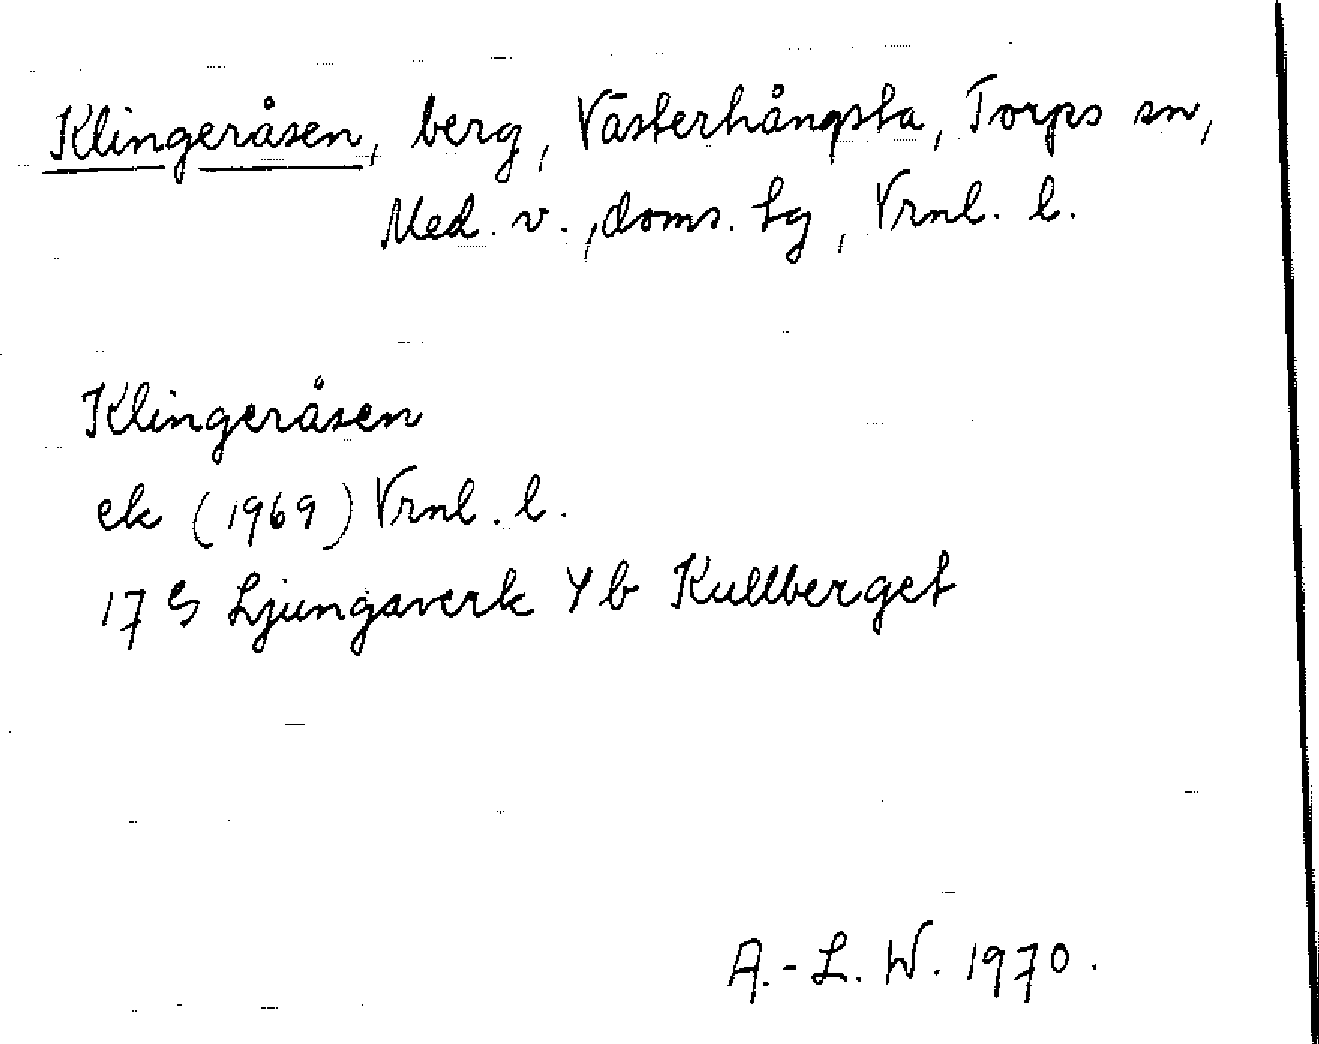 Klingeråsen, berg, Västerhångsta, Torps sn,
Med. v., doms. hg, Vrnl. l.
Klingeråsen
ek (1969) Vrnl. l.
17 G Ljungaverk 4 b Kullberget
A.-L. W. 1970.